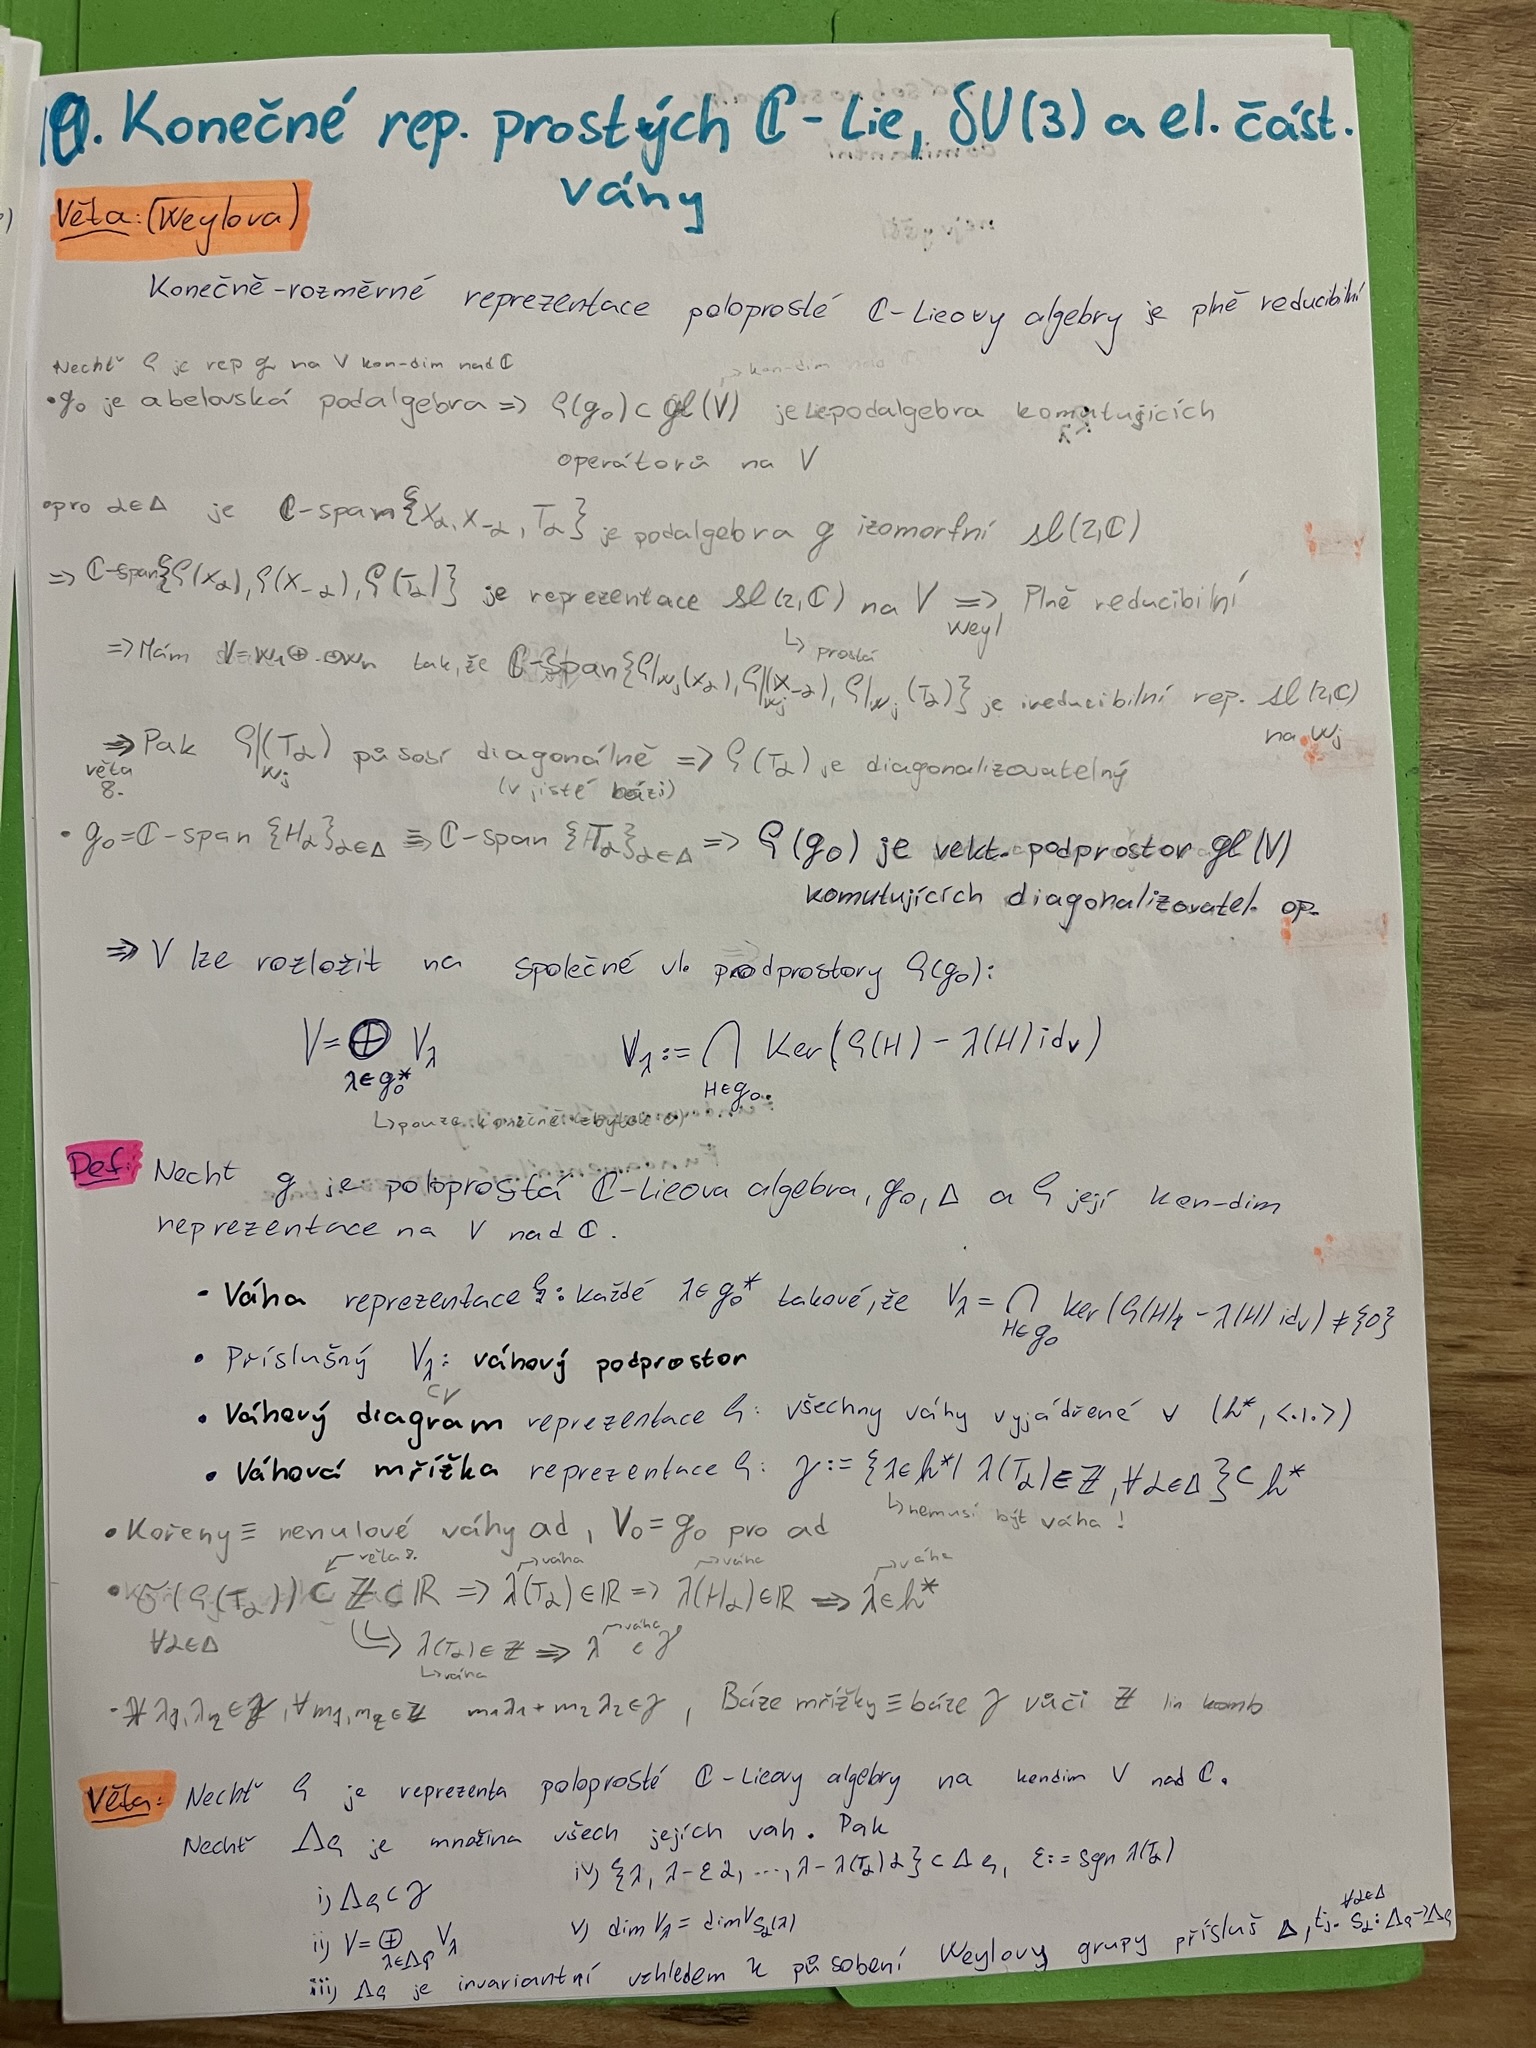 9. Konečné rep. prostých ℂ-Lie, SU(3) a el. část.
váhy
Věta: (Weylova)
Konečně-rozměrné reprezentace poloprosté ℂ-Lieovy algebry je plně reducibilní
Nechť ρ je rep g na V kon-dim nad ℂ
↳ kon-dim nad
• g₀ je abelovská podalgebra => ρ(g₀) ⊂ gl(V) je Liepodalgebra komutujících
operátorů na V
• pro α∈Δ je ℂ-span{X_α, X_-α, T_α} je podalgebra g izomorfní sl(2,ℂ)
=> ℂ-span{ρ(X_α), ρ(X_-α), ρ(T_α)} je reprezentace sl(2,ℂ) na V => Plně reducibilní
Weyl
↳ prostá
=> Mám V=W₁⊕...⊕Wₙ tak, že ℂ-span{ρ|_Wj(X_α), ρ|_Wj(X_-α), ρ|_Wj(T_α)} je ireducibilní rep. sl(2,ℂ)
na Wj
=> Pak ρ|_Wj(T_α) působí diagonálně => ρ(T_α) je diagonalizovatelný
věta 8.
(v jisté bázi)
• g₀=ℂ-span {H_α}_α∈Δ ≡ ℂ-span {T_α}_α∈Δ => ρ(g₀) je vekt. podprostor gl(V)
komutujících diagonalizovatel. op.
=> V lze rozložit na společné vl. podprostory ρ(g₀):
V = ⊕_λ∈g₀* V_λ V_λ := ⋂_H∈g₀ Ker(ρ(H) - λ(H) id_V)
↳ pouze konečně zbytek 0
Def: Nechť g je poloprostá ℂ-Lieova algebra, g₀, Δ a ρ její kon-dim
reprezentace na V nad ℂ.
• Váha reprezentace ρ: každé λ∈g₀* takové, že V_λ = ⋂_H∈g₀ ker(ρ(H) - λ(H) id_V) ≠ {0}
• Příslušný V_λ: váhový podprostor
⊂V
• Váhový diagram reprezentace ρ: všechny váhy vyjádřené v (h*, <.|.>)
• Váhová mřížka reprezentace ρ: J := {λ∈h* | λ(T_α) ∈ ℤ, ∀α∈Δ} ⊂ h*
↳ nemusí být váha !
• Kořeny ≡ nenulové váhy ad, V₀ = g₀ pro ad
věta 8. váha váha váha
• σ(ρ(T_α)) ⊂ ℤ ⊂ ℝ => λ(T_α) ∈ ℝ => λ(H_α) ∈ ℝ => λ∈h*
∀α∈Δ ↳ λ(T_α) ∈ ℤ => λ ∈ J
↳ váha váha
• ∀ λ₁, λ₂ ∈ J, ∀m₁, m₂ ∈ ℤ m₁λ₁ + m₂λ₂ ∈ J, Báze mřížky ≡ báze J vůči ℤ lin komb
Věta: Nechť ρ je reprezenta poloprosté ℂ-Lieovy algebry na kondim V nad ℂ.
Nechť Δ_ρ je množina všech jejích vah. Pak
i) Δ_ρ ⊂ J iv) {λ, λ-εα, ..., λ-λ(T_α)α} ⊂ Δ_ρ, ε := sgn λ(T_α)
ii) V = ⊕_λ∈Δρ V_λ v) dim V_λ = dim V_S_α(λ)
iii) Δ_ρ je invariantní vzhledem k působení Weylovy grupy přísluš Δ, tj. S_α: Δ_ρ→Δ_ρ
∀α∈Δ